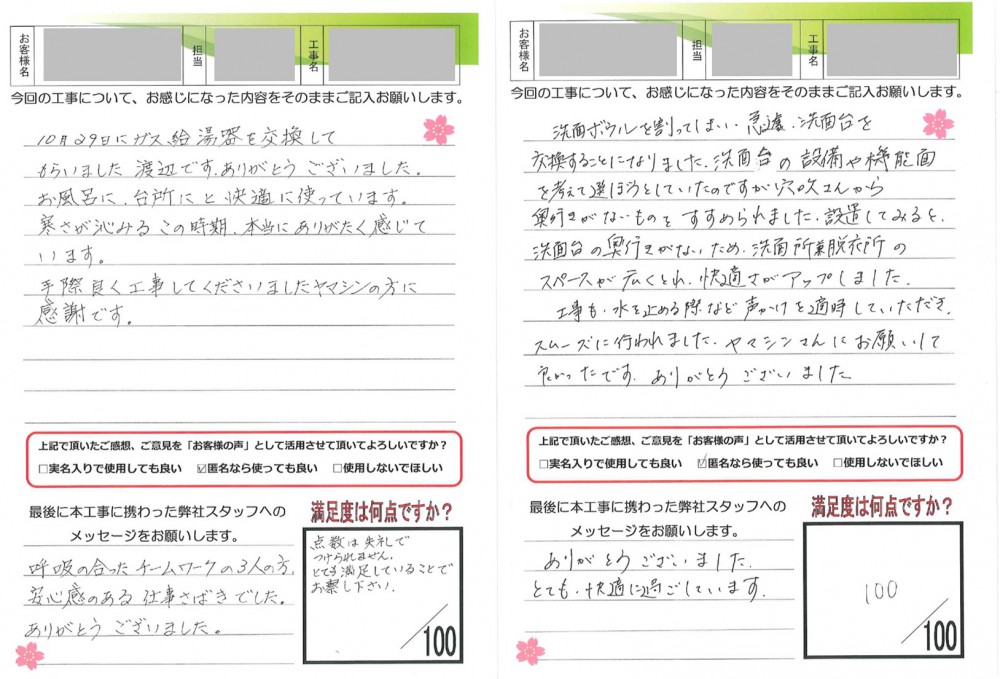 お客様名
担当
工事名
今回の工事について、お感じになった内容をそのままご記入お願いします。
10月29日にガス給湯器を交換して
もらいました 渡辺です。ありがとうございました。
お風呂に、台所にと快適に使っています。
寒さが沁みるこの時期、本当にありがたく感じて
います。
手際良く工事してくださいましたヤマシンの方に
感謝です。
上記で頂いたご感想、ご意見を「お客様の声」として活用させて頂いてよろしいですか？
□実名入りで使用しても良い ☑匿名なら使っても良い □使用しないでほしい
最後に本工事に携わった弊社スタッフへの
メッセージをお願いします。
呼吸の合ったチームワークの3人の方、
安心感のある仕事さばきでした。
ありがとうございました。
満足度は何点ですか？
点数は失礼で
つけられません。
とても満足していることで
お察し下さい。
/100
お客様名
担当
工事名
今回の工事について、お感じになった内容をそのままご記入お願いします。
洗面ボウルを割ってしまい、急遽、洗面台を
交換することになりました。洗面台の設備や機能面
を考えて選ぼうとしていたのですが穴吹さんから
奥行きがないものをすすめられました。設置してみると、
洗面台の奥行きがないため、洗面所兼脱衣所の
スペースが広くとれ、快適さがアップしました。
工事も、水を止める際など声かけを適時していただき、
スムーズに行われました。ヤマシンさんにお願いして
良かったです。ありがとうございました
上記で頂いたご感想、ご意見を「お客様の声」として活用させて頂いてよろしいですか？
□実名入りで使用しても良い ☑匿名なら使っても良い □使用しないでほしい
最後に本工事に携わった弊社スタッフへの
メッセージをお願いします。
ありがとうございました。
とても快適に過ごしています。
満足度は何点ですか？
100
/100